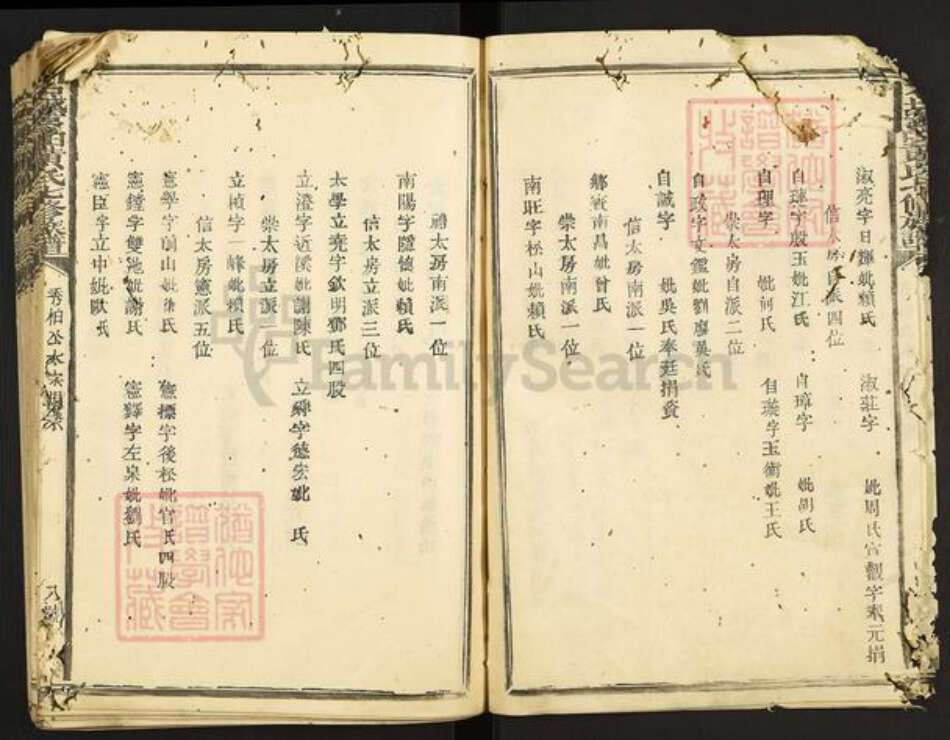 淑亮字日輝妣賴氏 淑莊字 妣周氏官觀字來元捐
信太房自派四位
自琏字殷玉妣江氏 自璋字 妣胡氏
自理字 妣何氏 自璇字玉衡妣王氏
崇太房自派二位
自政字文鑑妣劉廖吳氏
自誠字 妣吳氏奉廷捐資
信太房南派一位
鄉賓南昌妣曾氏
崇太房南派一位
南旺字松山妣賴氏
禮太房南派一位
南陽字隱德妣賴氏
信太房立派三位
太學立堯字欽明鄧氏四股
立澄字近溪妣謝陳氏 立舜字德宏妣 氏
崇太房立派一位
立楨字一峰妣賴氏
信太房憲派五位
憲學字前山妣徐氏 憲標字後松妣官氏四股
憲鏜字雙池妣謝氏 憲鐸字左泉妣劉氏
憲臣字立中妣歐氏
秀柏公
氏七修族譜
FamilySearch